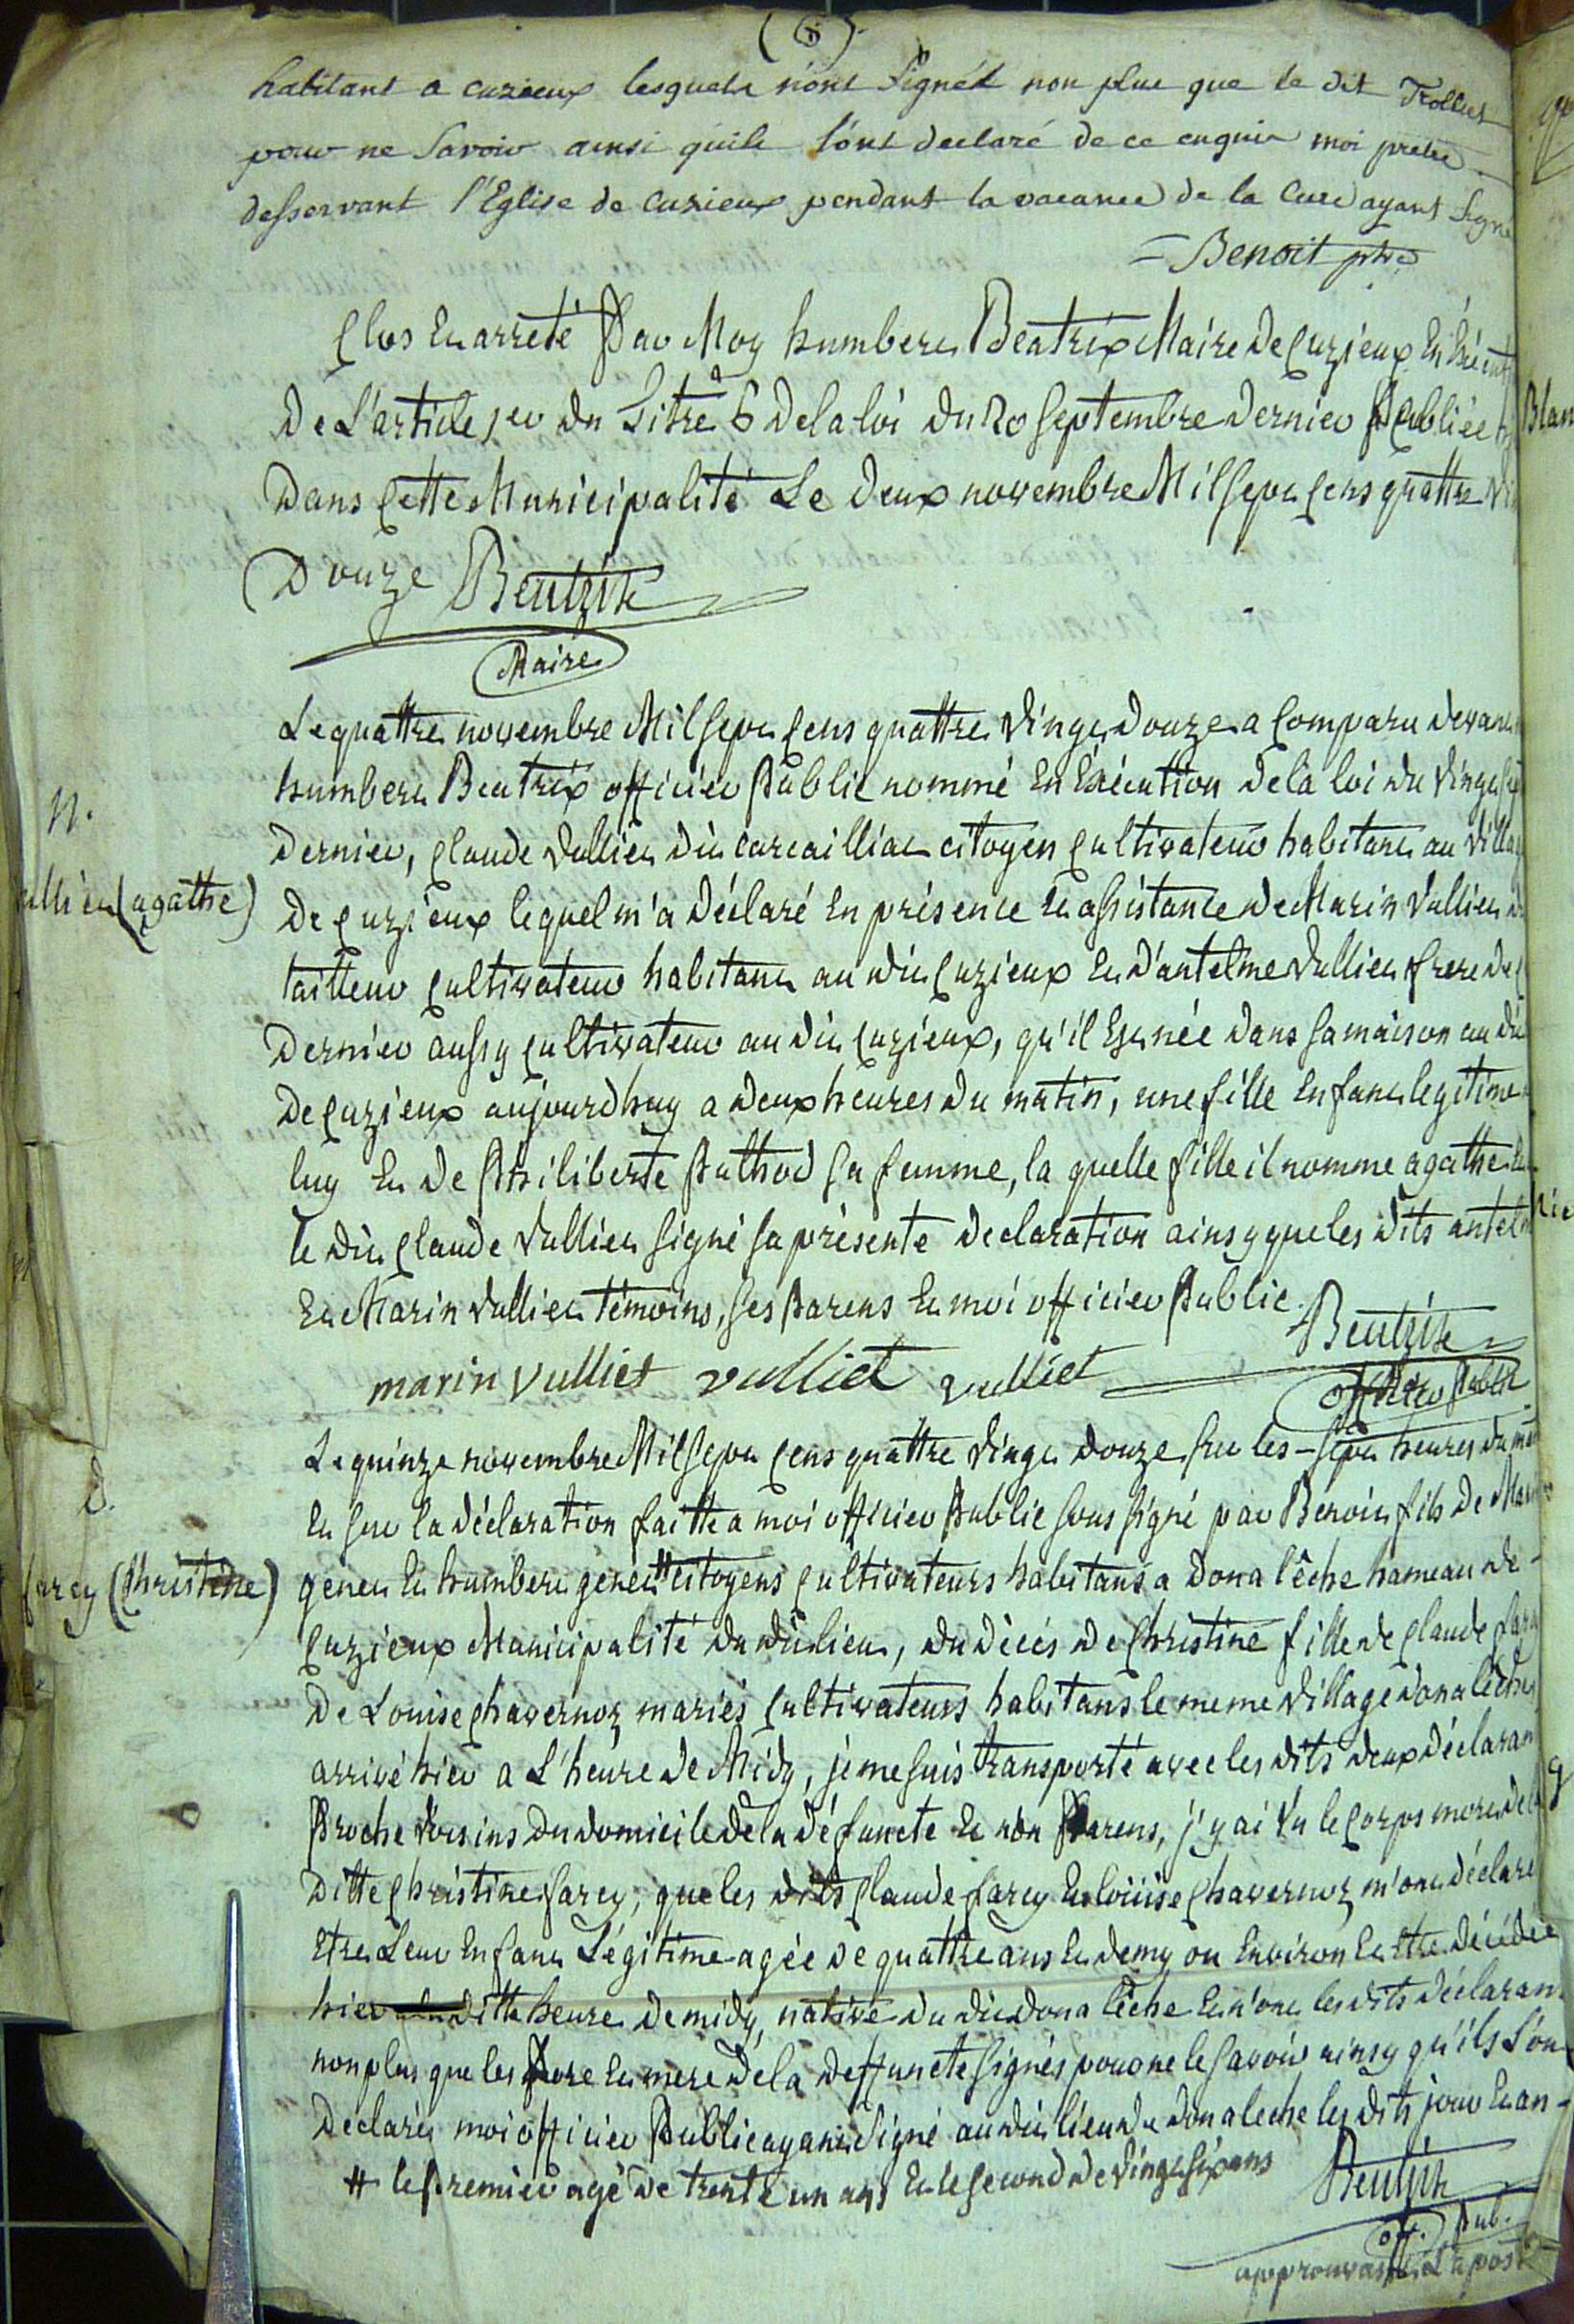 (6)
habitant a cuzieux lesquels n'ont signés non plus que le dit Trolliet
pour ne savoir ainsi qu'ils l'ont declaré de ce enquis moi pretre
desservant l'Eglise de cuzieux pendant la vacance de la Cure ayant signé
Benoit ptre
Clos et arreté Par Moy humbert Beatrix Maire de Cuzieux En
De L'article 1er du Titre 6 de la loi du 20 septembre dernier Publiée
Dans Cette Municipalité Le deux novembre Mil sept Cens quattre
Douze Beatrix
Maire
Le quattre novembre Mil sept Cens quattre vingt douze a Comparu devant
humbert Beatrix officier Public nommé En Exécution de la loi du vingt
Dernier, Claude Vulliet dit carcailliat citoyen Cultivateur habitant au Villag
De Cuzieux lequel m'a déclaré En présence et assistance de Marin Vulliet
tailleur Cultivateur habitant au dit Cuzieux Et d'antelme Vulliet frere du
Dernier aussy Cultivateur au dit Cuzieux, qu'il Est née dans sa maison au dit
De Cuzieux aujourdhuy a deux heures du matin, une fille Enfant legitime
luy Et de Philiberte Buthod sa femme, la quelle fille il nomme agathe Et
le dit Claude Vulliet signé sa présente declaration ainsy que les dits antel
Et Marin Vulliet témoins, ses Parens Et moi officier Public
N.
ulliet (agathe)
Beatrix
marin vulliet vulliet vulliet
officier Public
Le quinze novembre Mil sept Cens quattre vingt douze sur les sept heures du
Et sur la déclaration faitte a moi officier Public sous signé par Benoit fils de
genet Et humbert genet # citoyens Cultivateurs habitans a Dona lêche hameau de
Cuzieux Municipalité du dit lieu, du décés de Christine fille de Claude
De Louise Chavernoz mariés Cultivateurs habitans le meme Village dona lêche
arrivé hier a L'heure de Midy, je me suis transporté avec les dits deux déclaran
Proche voisins du domicile de la défuncte Et non Parens, j'y ai Vu le Corps mort de
Ditte Christine farcy, que les dits Claude farcy Et loüise Chavernoz m'ont déclaré
Etre Leur Enfant Légitime agée de quattre ans Et demy ou Environ Et Etre décédée
hier ditte heure de midy, native du dit dona lêche Et n'ont les dits déclaran
non plus que les Pere Et mere de la deffuncte signés pour ne le savoir ainsy qu'ils l'ont
Declarés moi officier Public ayant signé au dit lieu de dona leche les dits jour Et an
# le Premier agé de trente un ans Et le second de vingt six ans
D.
farcy (Christine)
Beatrix
off. Pub.
approuvant